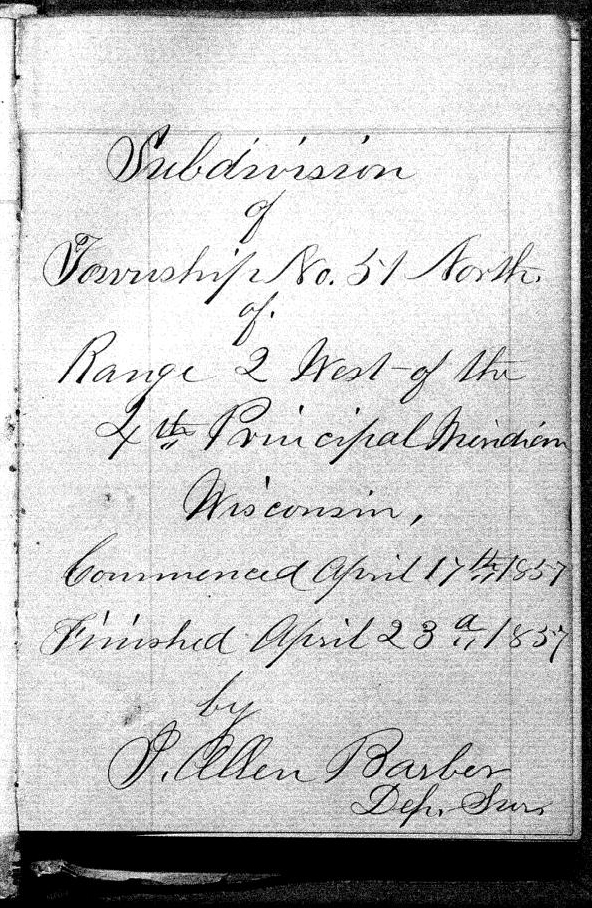 Subdivision
of
Township No. 51 North.
of.
Range 2 West of the
4th Principal Meridian
Wisconsin,
Commenced April 17th 1857
Finished April 23d 1857
by
J. Allen Barber
Dep. Sur.